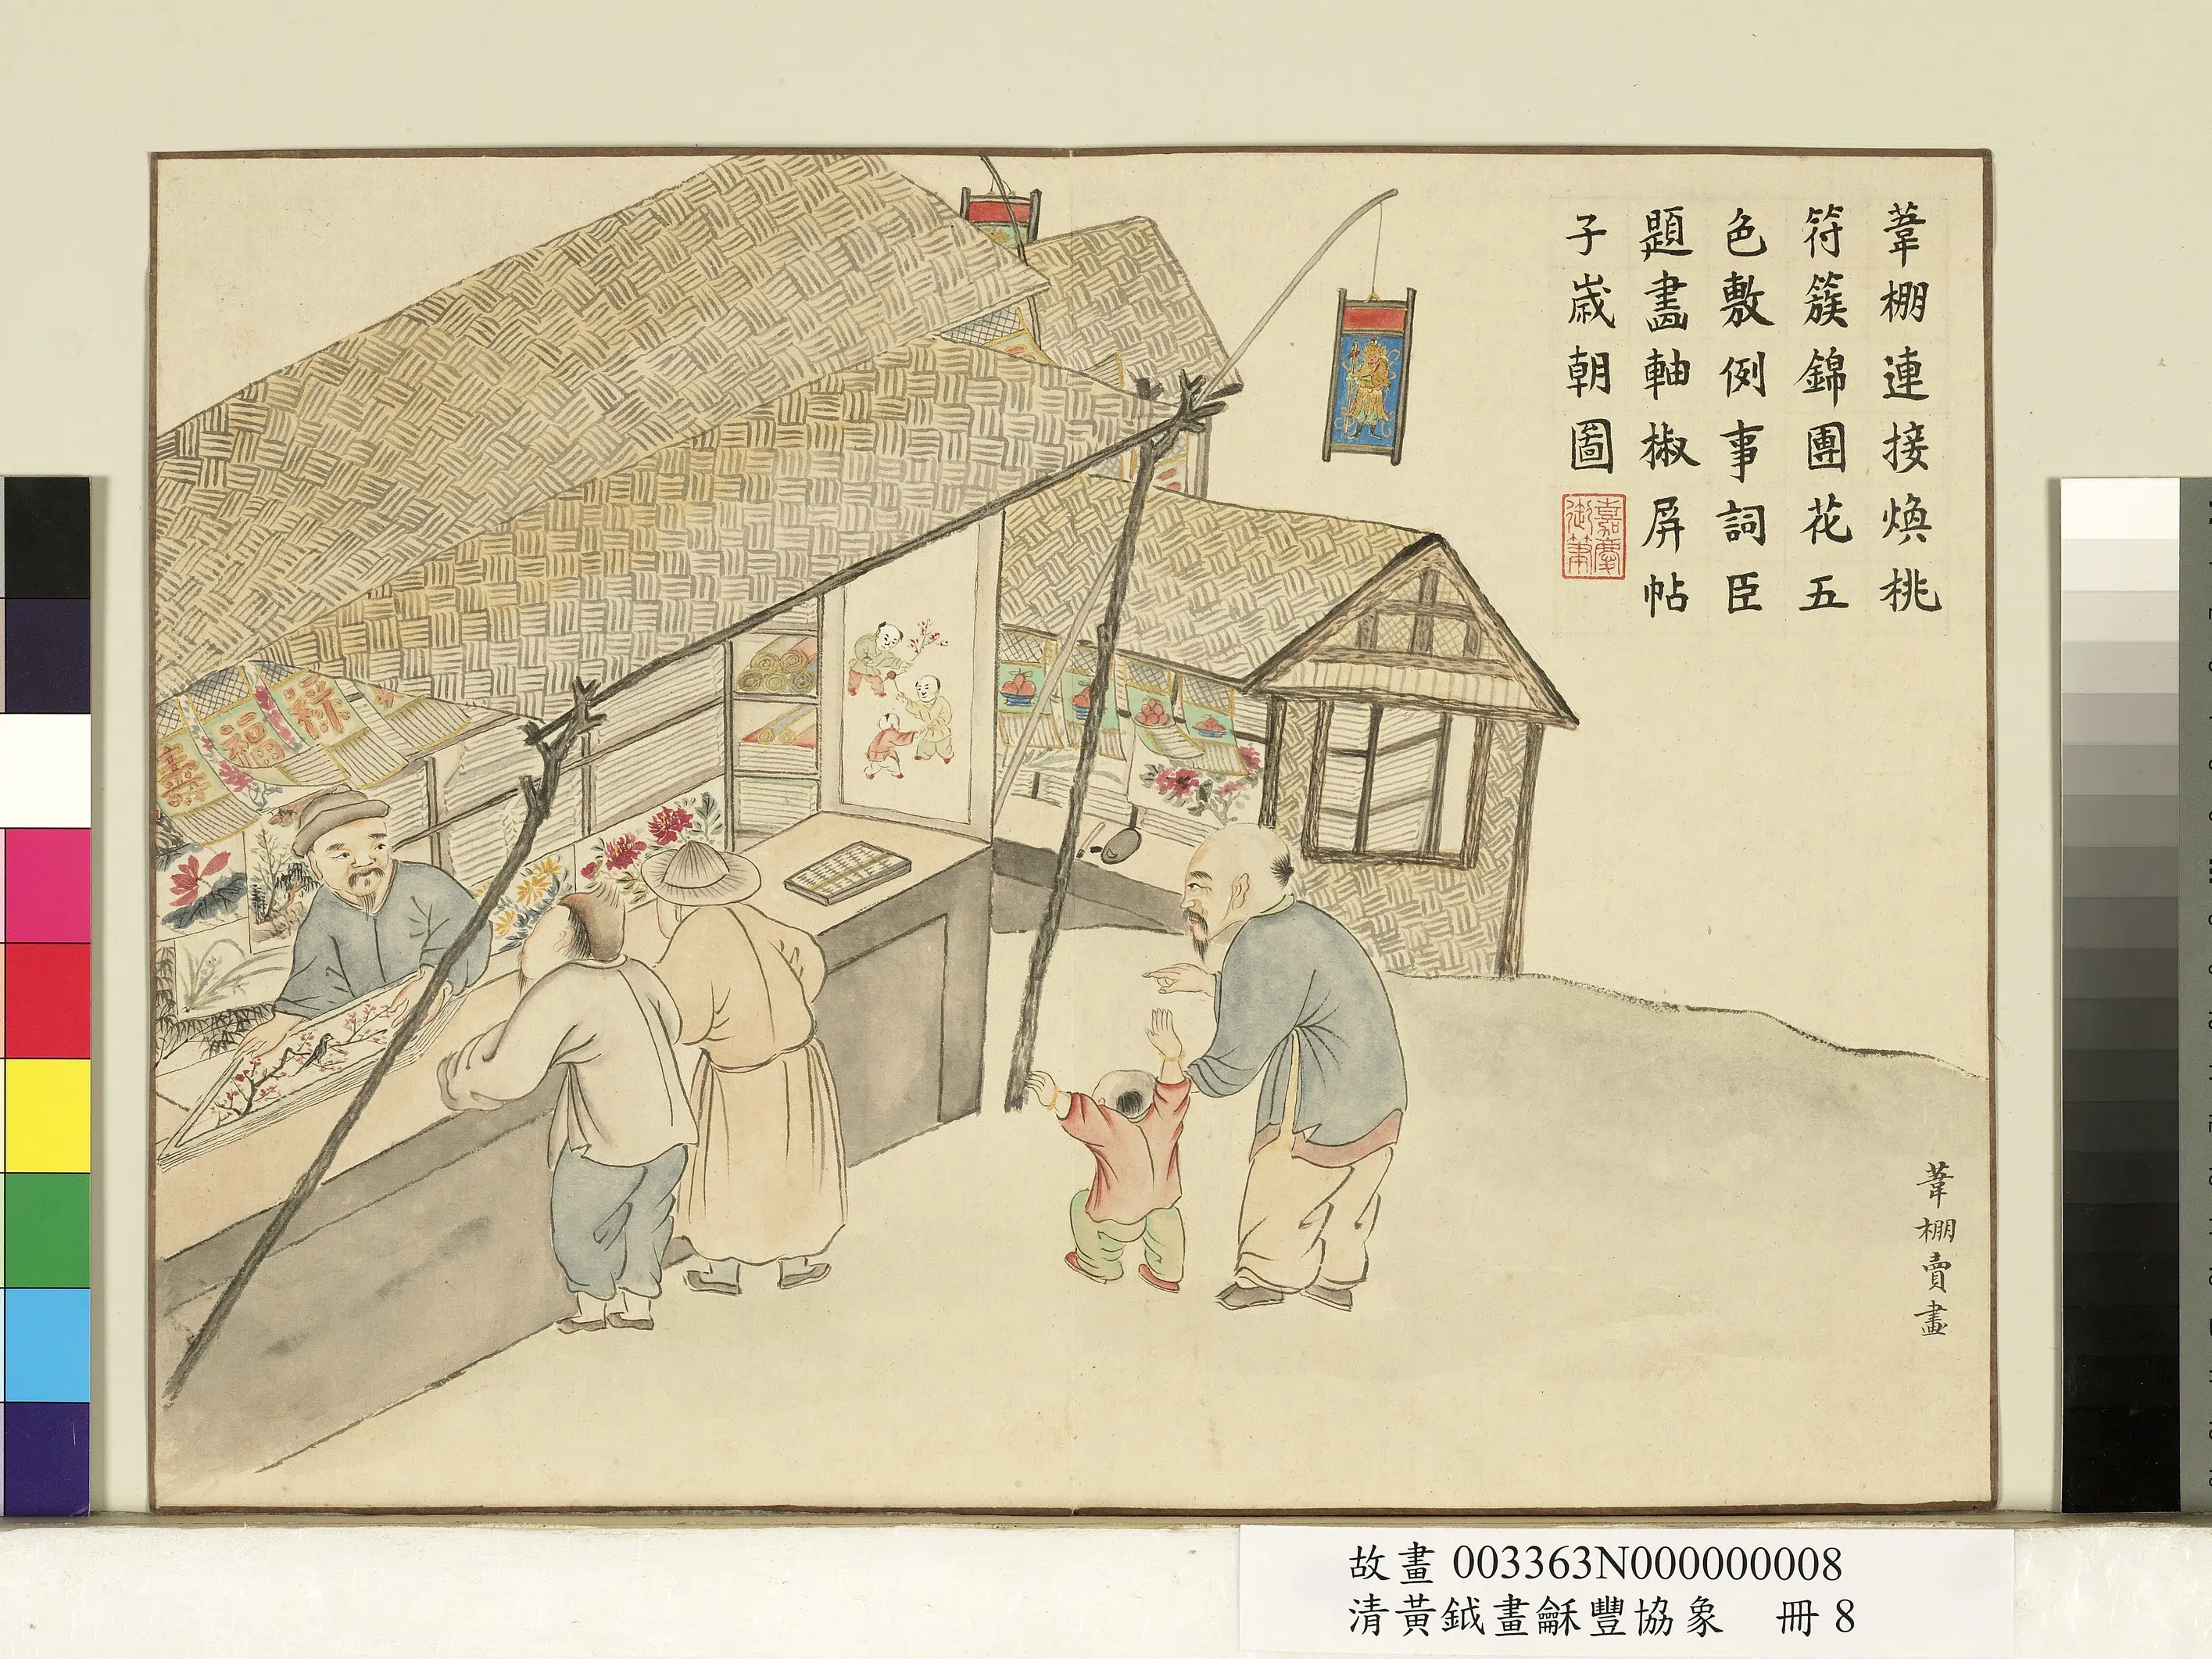 葦棚連接煥桃
符簇錦團花五
色敷例事詞臣
題畫軸椒屏帖
子歲朝圖
嘉慶
御筆
葦棚賣畫
祿
福
壽
故畫 003363N000000008
清黃鉞畫龢豐協象 冊 8